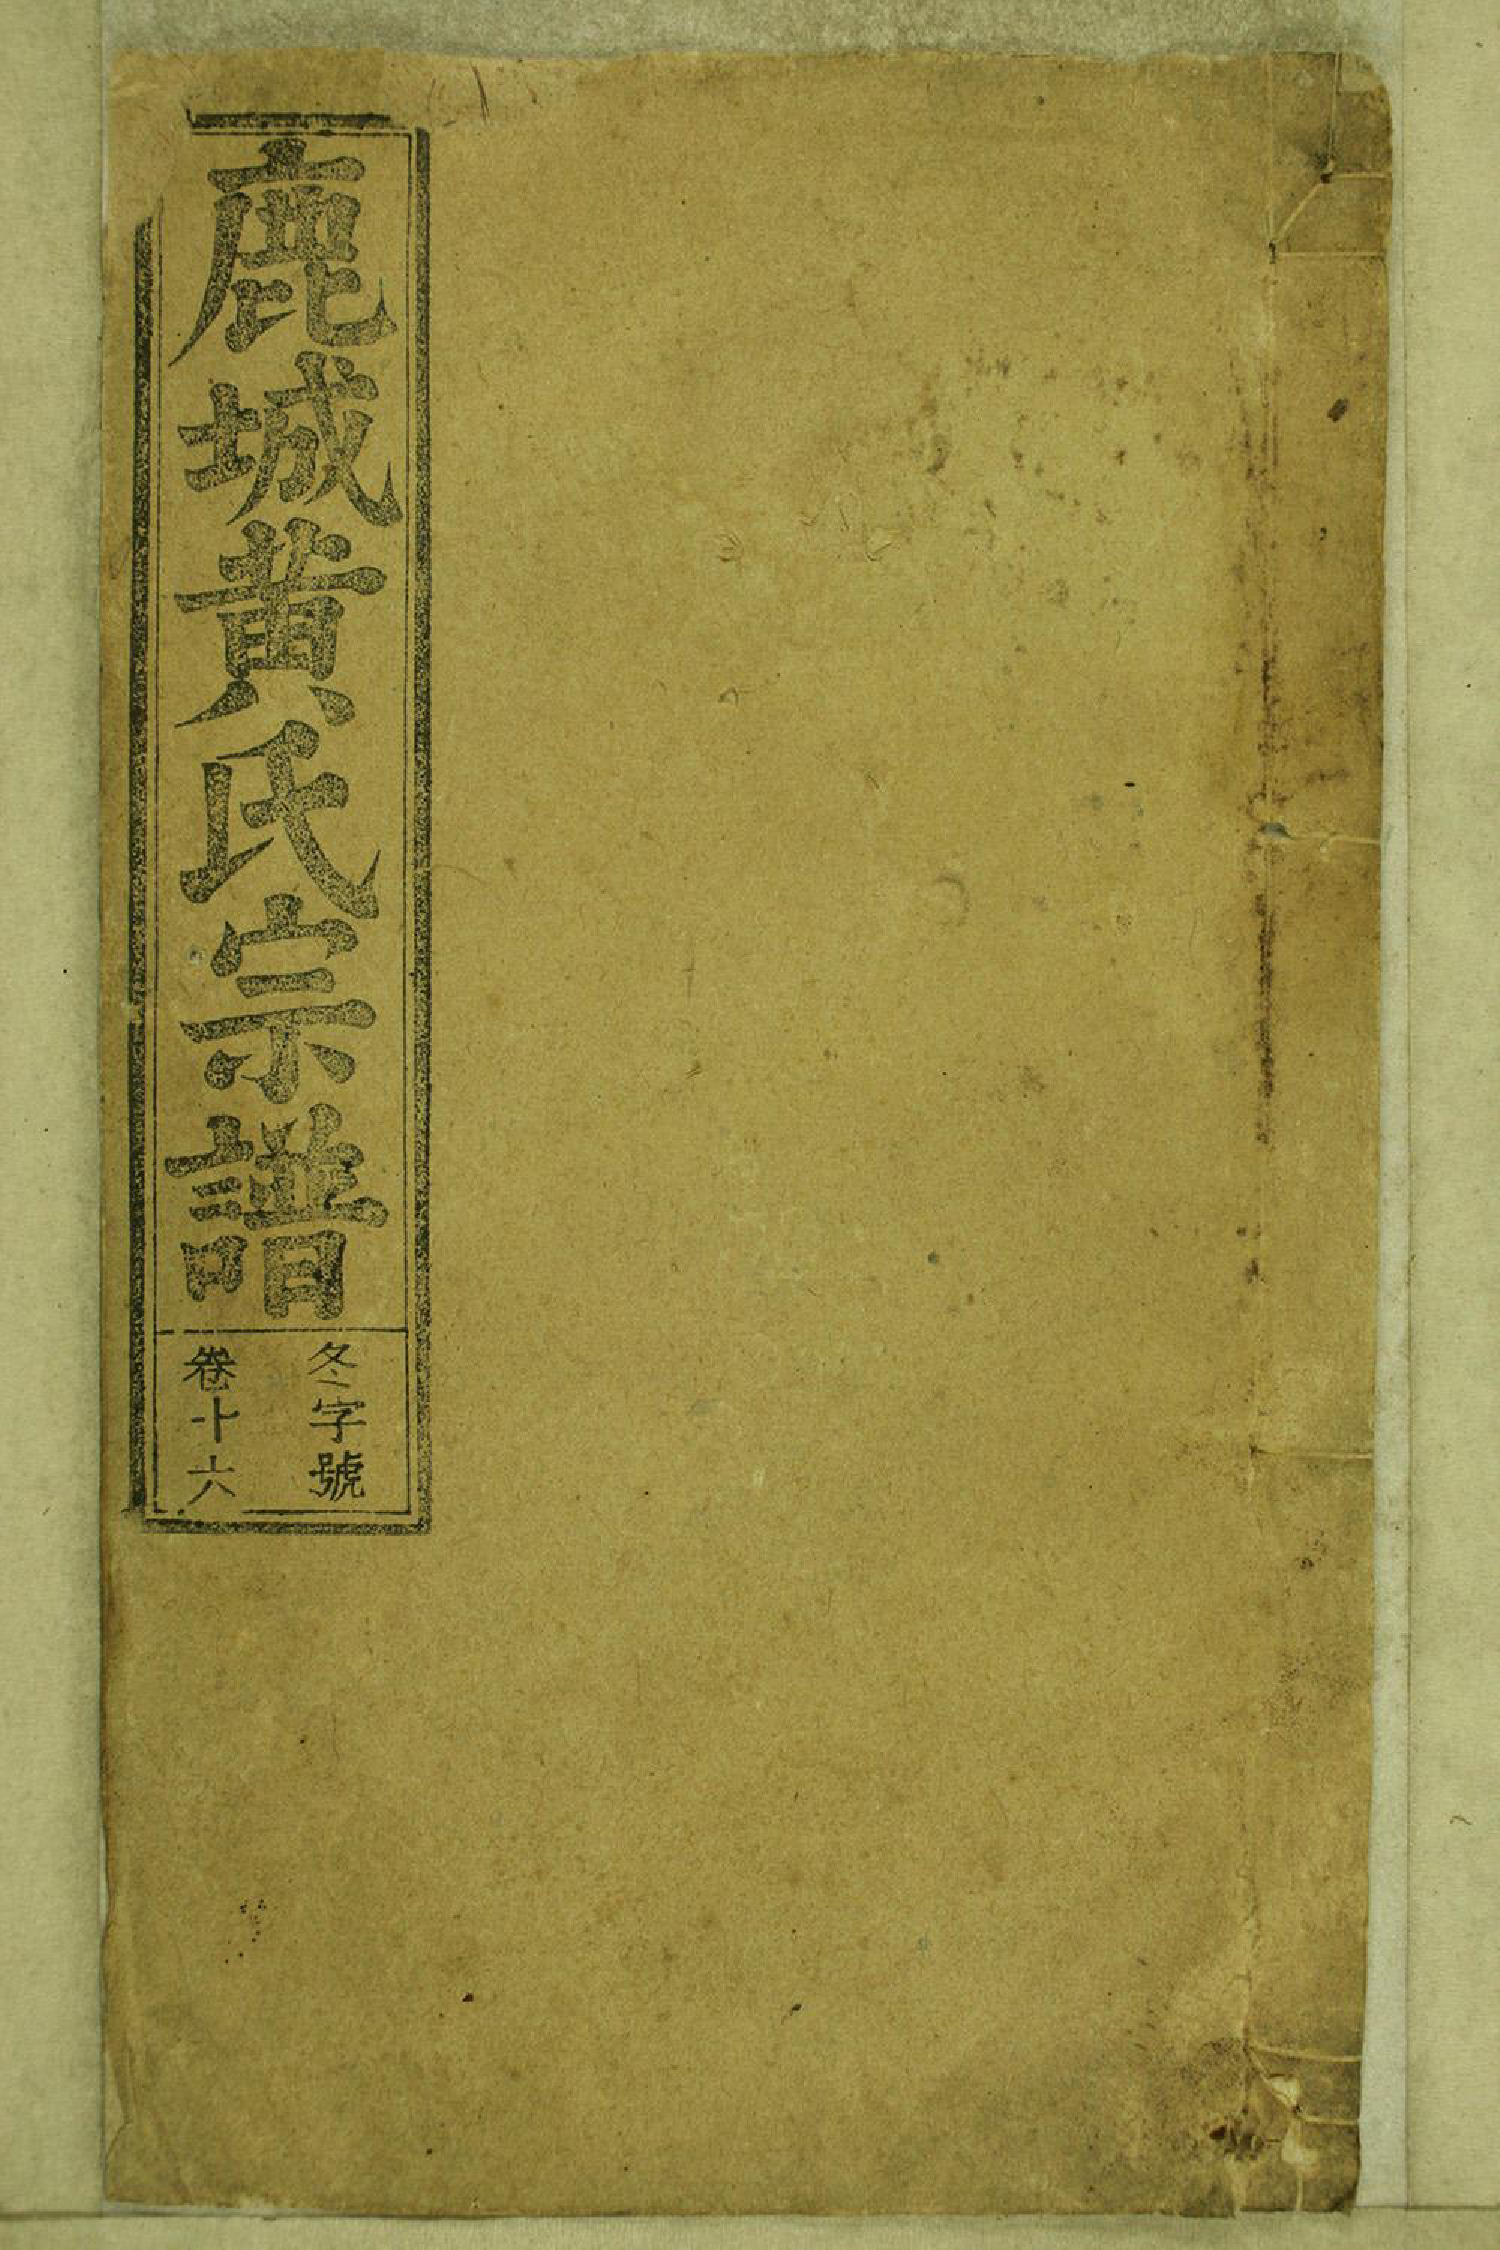 鹿城黃氏宗譜
冬字號
卷十六